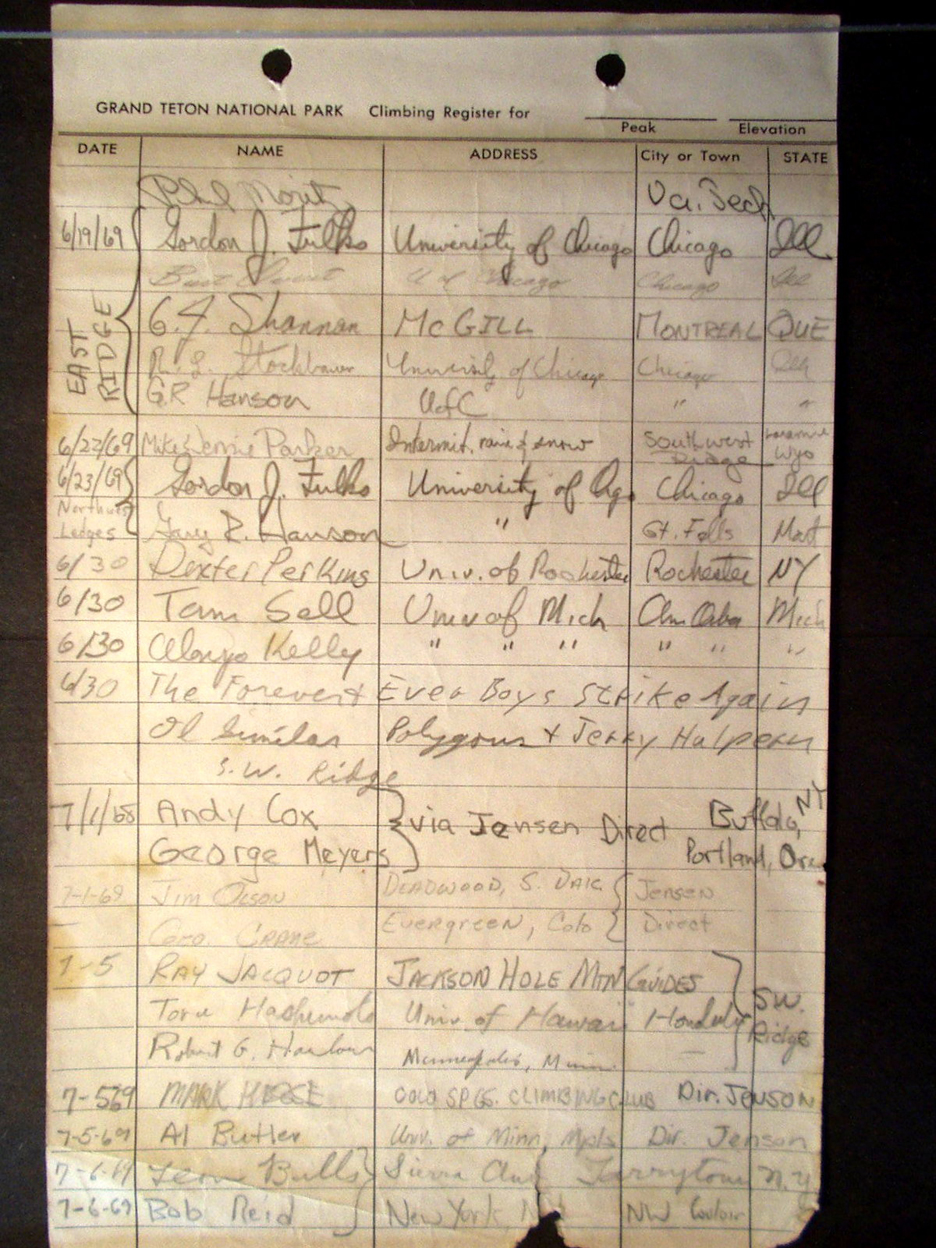 GRAND TETON NATIONAL PARK Climbing Register for
Peak Elevation
DATE NAME ADDRESS City or Town STATE
Phil Va. Tech
6/19/69 Gordon J. Fulks University of Chicago Chicago Ill
U of Chicago Chicago Ill
EAST RIDGE
G.J. Shannon McGILL MONTREAL QUE
University of Chicago Chicago
G.R Hanson UofC " "
6/22/69 Mike & Jennie Parker Intermit. rain & snow Southwest Ridge Laramie Wyo
6/23/69 Gordon J. Fulks University of Cgo Chicago Ill
Northwest Ledges Gary R. Hanson " Gt. Falls Mont
6/30 Dexter Perkins Univ. of Rochester Rochester NY
6/30 Tom Sell Univ of Mich Ann Arbor Mich
6/30 Alonzo Kelly " " " " " "
6/30 The Forever + Ever Boys Strike Again
Ol Similar Polygons + Jerry Halpern
S.W. Ridge
7/1/68 Andy Cox via Jensen Direct Buffalo, NY
George Meyers Portland, Ore
7-1-69 Jim Olson DEADWOOD, S. DAK. Jensen
Geo. CRANE EVERGREEN, Colo Direct
7-5 RAY JACQUOT JACKSON HOLE MTN GUIDES S.W. Ridge
Toru Hashimoto Univ of Hawaii Honolulu
Robert G. Minneapolis, Minn.
7-569 MARK COLO SPGS. CLIMBING CLUB Dir. JENSON
7-5-69 Al Butler Univ. of Minn, Mpls Dir. Jenson
7-6-69 Leon Sierra Club Tarrytown N.Y
7-6-69 Bob Reid New York, NY NW Couloir